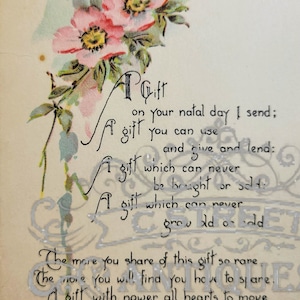 A Gift
on your natal day I send;
A gift you can use
and give and lend:
A gift which can never
be bought or sold:
A gift which can never
grow old or cold
The more you share of this gift so rare
The more you will find you have to spare!
A gift with power all hearts to move
STREET
ANTIQUES